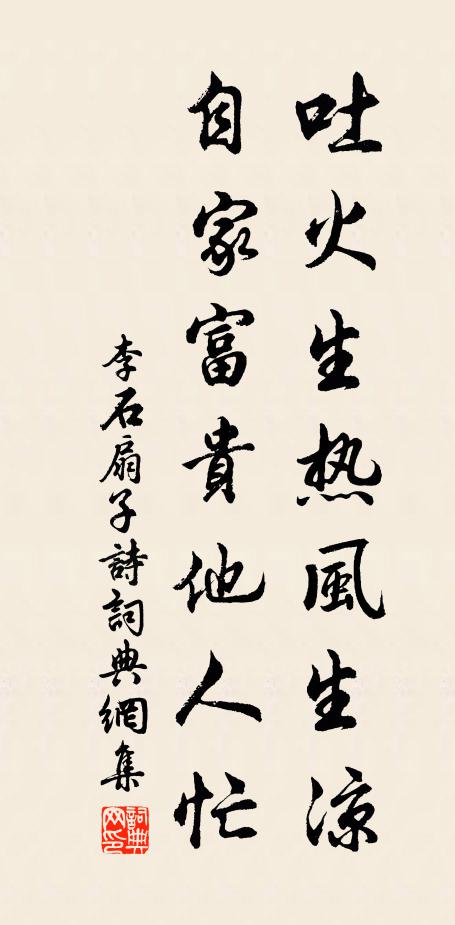 吐火生热風生凉
自家富貴他人忙
李石扇子詩詞典網集
詞典網印